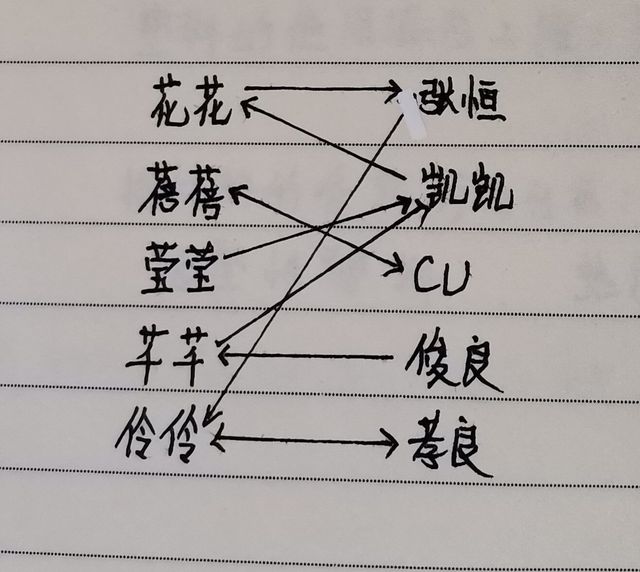 花花 张恒
蓓蓓 凯凯
莹莹 CU
芊芊 俊良
伶伶 孝良